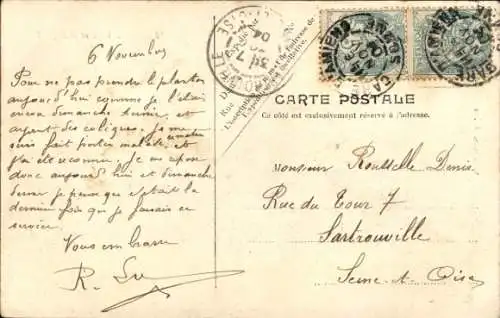 6 Novembre
Pour ne pas prendre le planton
aujourd'hui comme je l'étais
dimanche dernier, et
ayant des coliques, je me
suis fait porter malade ce matin
et j'ai été reconnu, je me repose
donc aujourd'hui et dimanche
dernier je pense que c'était la
dernière fois que je faisais ce
service.
Vous embrasse
R.
CARTE POSTALE
Ce côté est exclusivement réservé à l'adresse.
Monsieur Rousselle Denis
Rue du Tour 7
Sartrouville
Seine-et-Oise
AMIENS
GARE
AMIENS
GARE